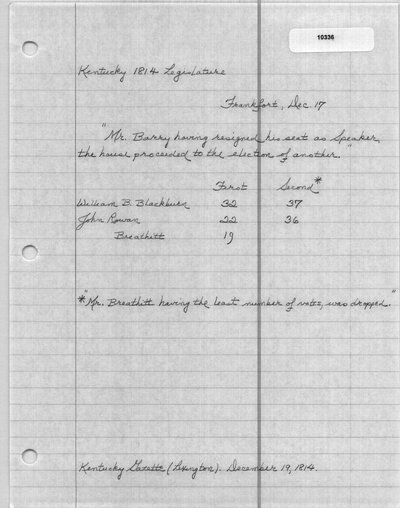 10336
Kentucky 1814 Legislature
Frankfort, Dec. 17
"Mr. Barry having resigned his seat as Speaker,
the house proceeded to the election of another."
First Second*
William B. Blackburn 32 37
John Rowan 22 36
Breathitt 19
*"Mr. Breathitt having the least number of votes, was dropped."
Kentucky Gazette (Lexington). December 19, 1814.